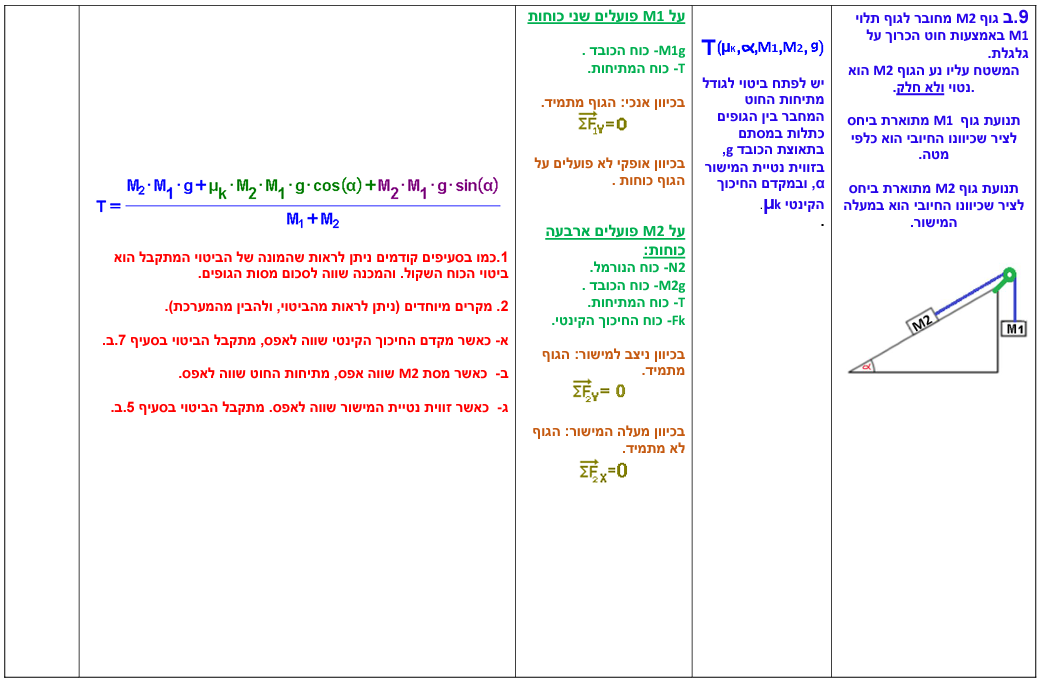 9.ב גוף M2 מחובר לגוף תלוי
M1 באמצעות חוט הכרוך על
גלגלת.
המשטח עליו נע הגוף M2 הוא
נטוי ולא חלק.
תנועת גוף M1 מתוארת ביחס
לציר שכיוונו החיובי הוא כלפי
מטה.
תנועת גוף M2 מתוארת ביחס
לציר שכיוונו החיובי הוא במעלה
המישור.
M2
M1
α
T(μk,α,M1,M2,g)
יש לפתח ביטוי לגודל
מתיחות החוט
המחבר בין הגופים
כתלות במסתם
בתאוצת הכובד g,
בזווית נטיית המישור
α, ובמקדם החיכוך
הקינטי μk.
.
על M1 פועלים שני כוחות
M1g- כוח הכובד .
T- כוח המתיחות.
בכיוון אנכי: הגוף מתמיד.
ΣF1Y=0
בכיוון אופקי לא פועלים על
הגוף כוחות .
על M2 פועלים ארבעה
כוחות:
N2- כוח הנורמל.
M2g- כוח הכובד .
T- כוח המתיחות.
Fk- כוח החיכוך הקינטי.
בכיוון ניצב למישור: הגוף
מתמיד.
ΣF2Y= 0
בכיוון מעלה המישור: הגוף
לא מתמיד.
ΣF2X=0
T = (M2·M1·g+μk·M2·M1·g·cos(α)+M2·M1·g·sin(α)) / (M1+M2)
1.כמו בסעיפים קודמים ניתן לראות שהמונה של הביטוי המתקבל הוא
ביטוי הכוח השקול. והמכנה שווה לסכום מסות הגופים.
2. מקרים מיוחדים (ניתן לראות מהביטוי, ולהבין מהמערכת).
א- כאשר מקדם החיכוך הקינטי שווה לאפס, מתקבל הביטוי בסעיף 7.ב.
ב- כאשר מסת M2 שווה אפס, מתיחות החוט שווה לאפס.
ג- כאשר זווית נטיית המישור שווה לאפס. מתקבל הביטוי בסעיף 5.ב.